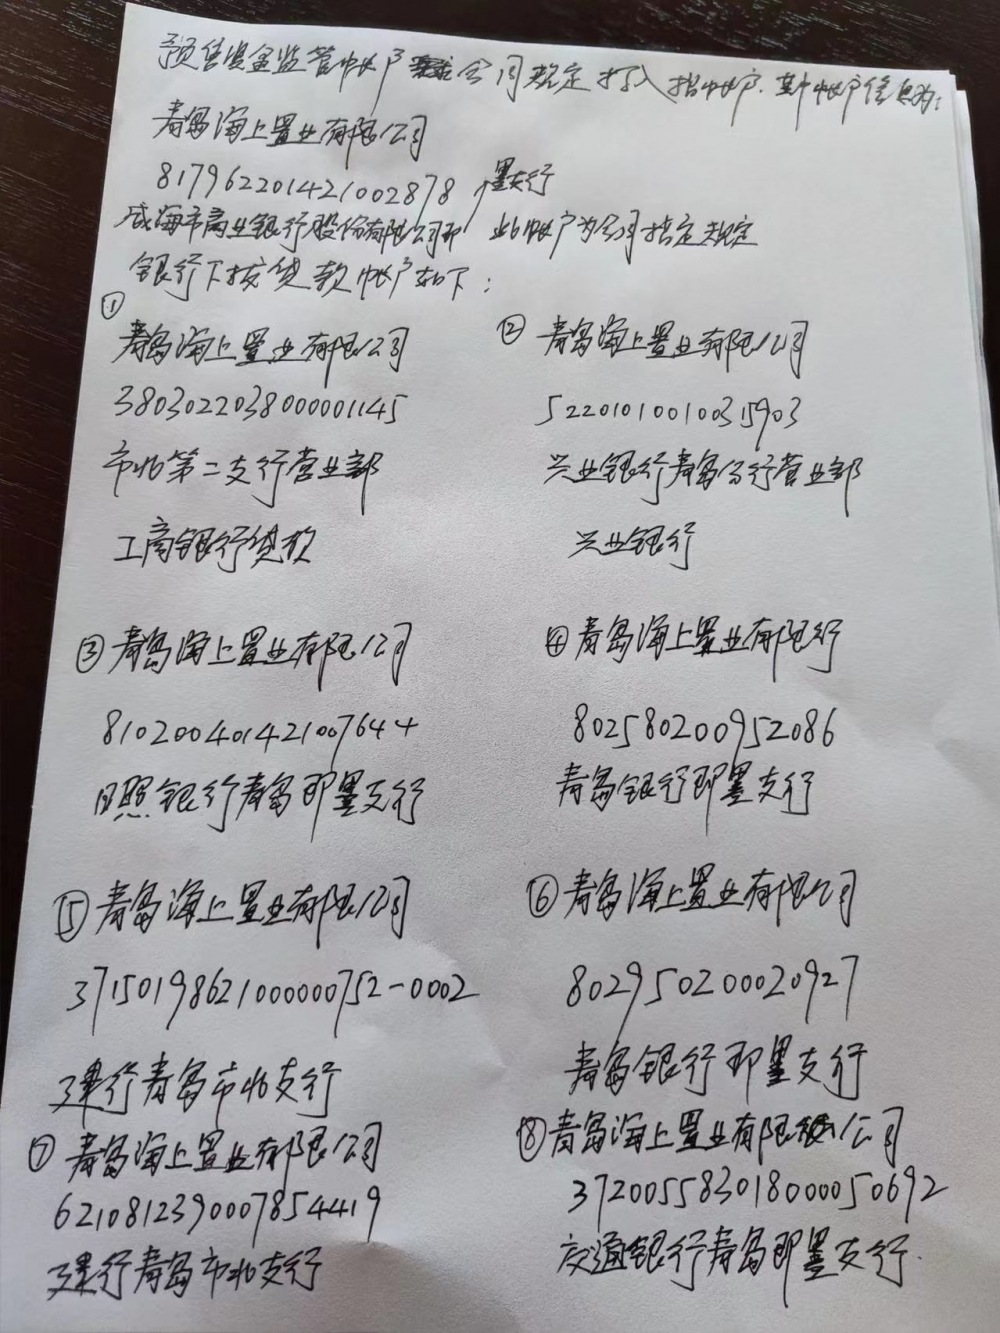 预售资金监管帐户 合同规定打入指帐户.其帐户信息为:
青岛海上置业有限公司
817962201421002878
墨支行
威海市商业银行股份有限公司即 此帐户为合同指定规定
银行下拨贷款帐户如下:
①
青岛海上置业有限公司
3803022038000001145
市北第二支行营业部
工商银行贷款
② 青岛海上置业有限公司
522010100100315903
兴业银行青岛分行营业部
兴业银行
③ 青岛海上置业有限公司
810200401421007644
日照银行青岛即墨支行
④ 青岛海上置业有限行
802580200952086
青岛银行即墨支行
⑤ 青岛海上置业有限公司
37150198621000000752-0002
建行青岛市北支行
⑥ 青岛海上置业有限公司
802950200020927
青岛银行即墨支行
⑦ 青岛海上置业有限公司
6210812390007854419
建行青岛市北支行
⑧ 青岛海上置业有限公司
372005583018000050692
交通银行青岛即墨支行.